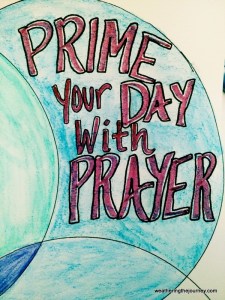 PRIME
Your DAY
With
PRAYER
weatheringthejourney.com